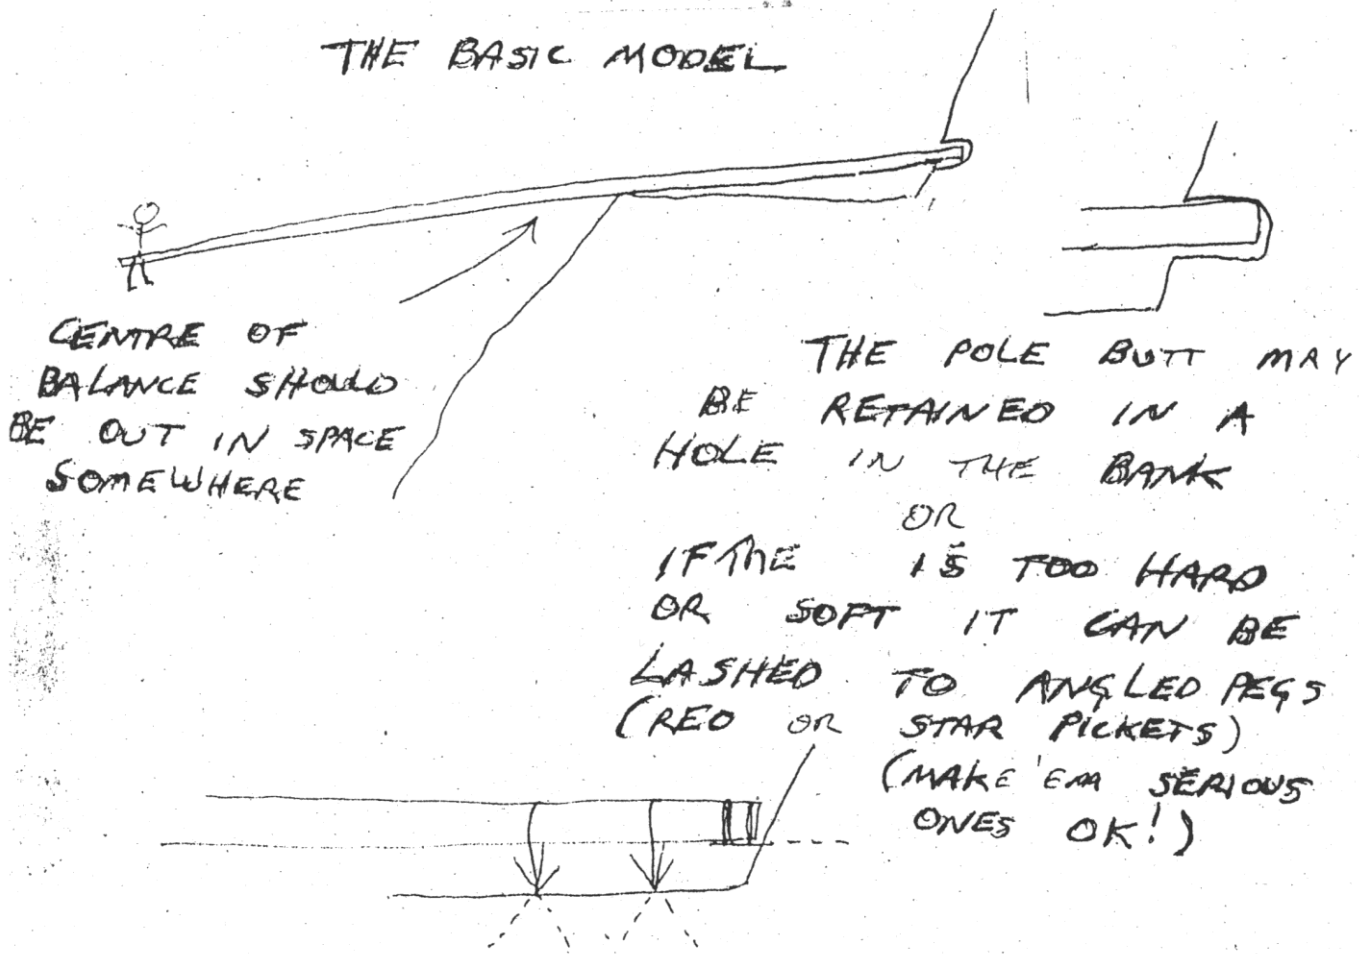 THE BASIC MODEL
CENTRE OF
BALANCE SHOULD
BE OUT IN SPACE
SOMEWHERE
THE POLE BUTT MAY
BE RETAINED IN A
HOLE IN THE BANK
OR
IF THE IS TOO HARD
OR SOFT IT CAN BE
LASHED TO ANGLED PEGS
(REO OR STAR PICKETS)
(MAKE 'EM SERIOUS
ONES OK!)